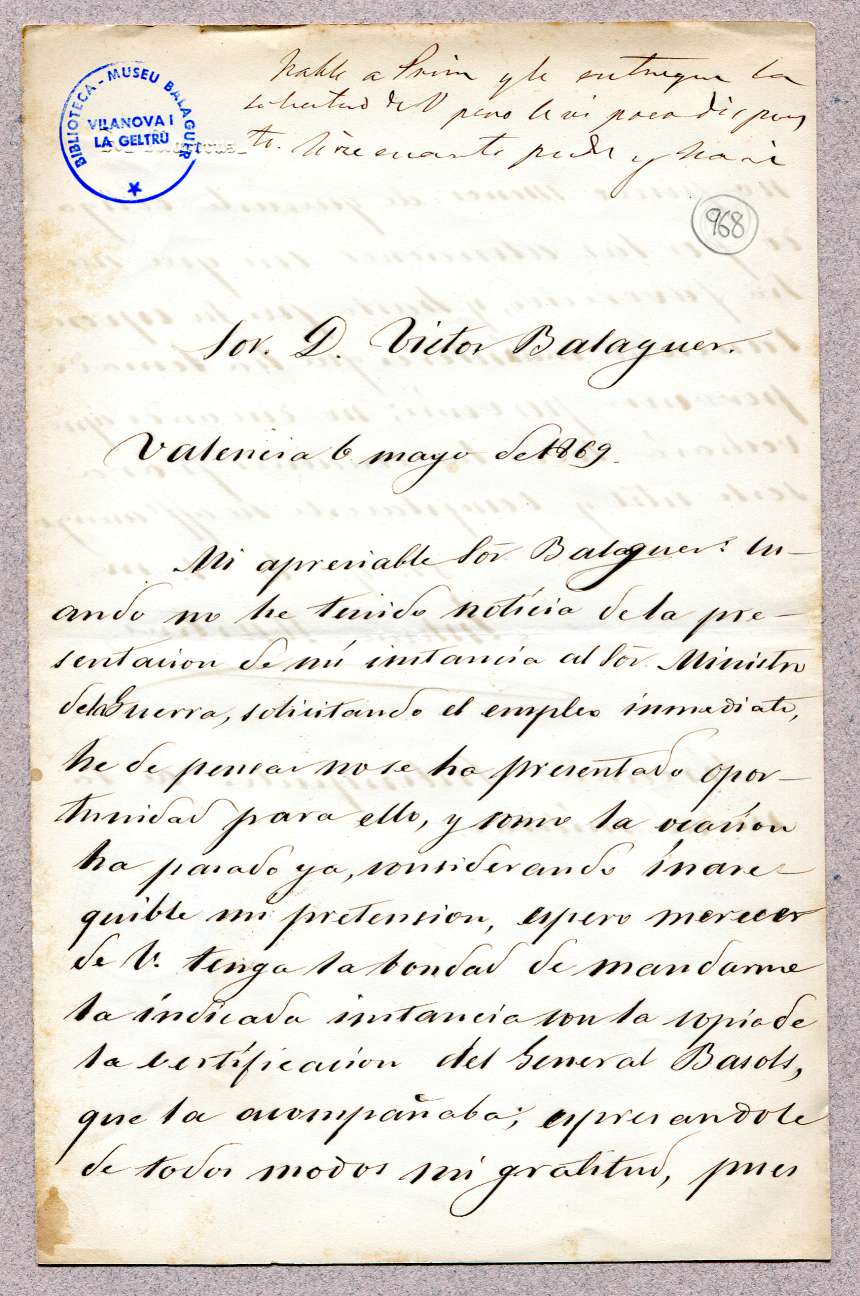 Hable a Prim y le entregue la
solicitud de V pero le vi poco dispues
to. Hare cuanto pude y hare
BIBLIOTECA - MUSEU BALAGUER
VILANOVA I
LA GELTRÚ
968
Sor. D. Victor Balaguer.
Valencia 6 mayo de 1869.
Mi apreciable Sor. Balaguer: Cu-
ando no he tenido notícia de la pre-
sentacion de mi instancia al Sor. Ministro
de la Guerra, solicitando el empleo inmediato,
he de pensar no se ha presentado opor-
tunidad para ello, y como la ocasion
ha pasado ya, considerando ínase-
quible mi pretension, espero merecer
de V. tenga la bondad de mandarme
la índicada instancia con la copia de
la certíficacion del General Basols,
que la acompañaba; espresandole
de todos modos mi gratitud, pues